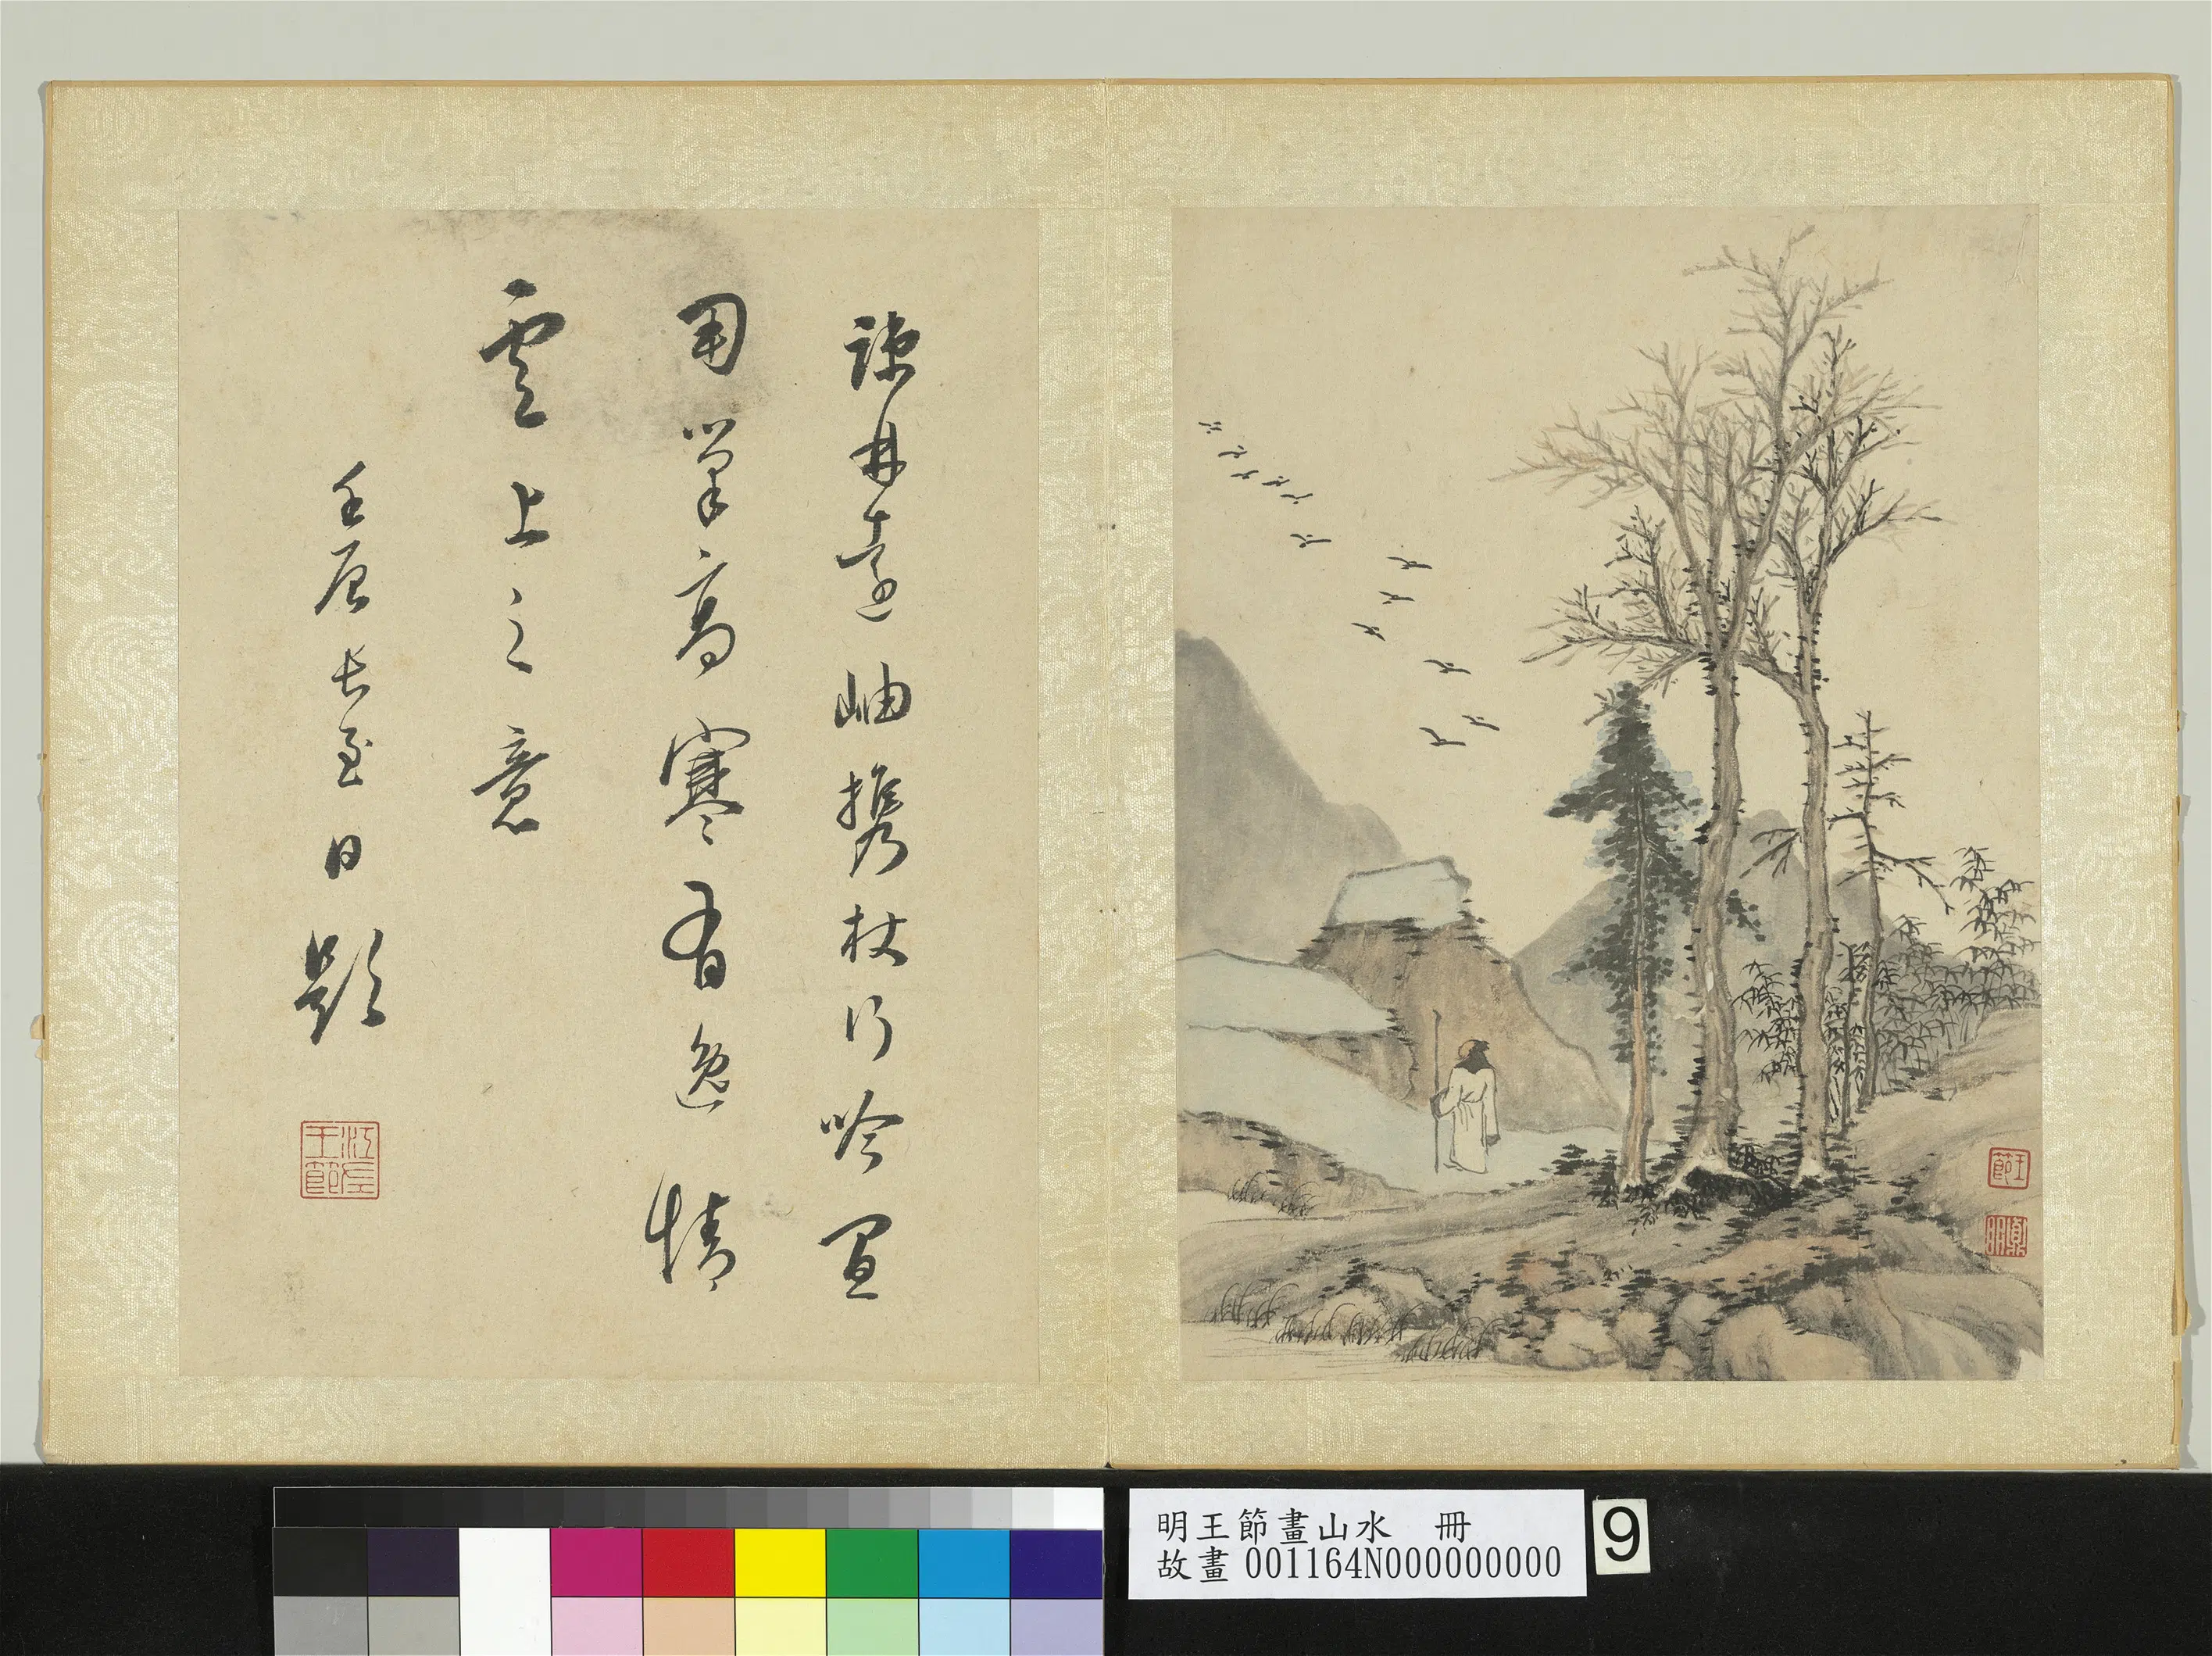 疎林遠岫攜杖行吟置
用筆高寒有逸情
雲上之意
壬辰長至日題
王節
明王節畫山水 冊
故畫 001164N000000000
9